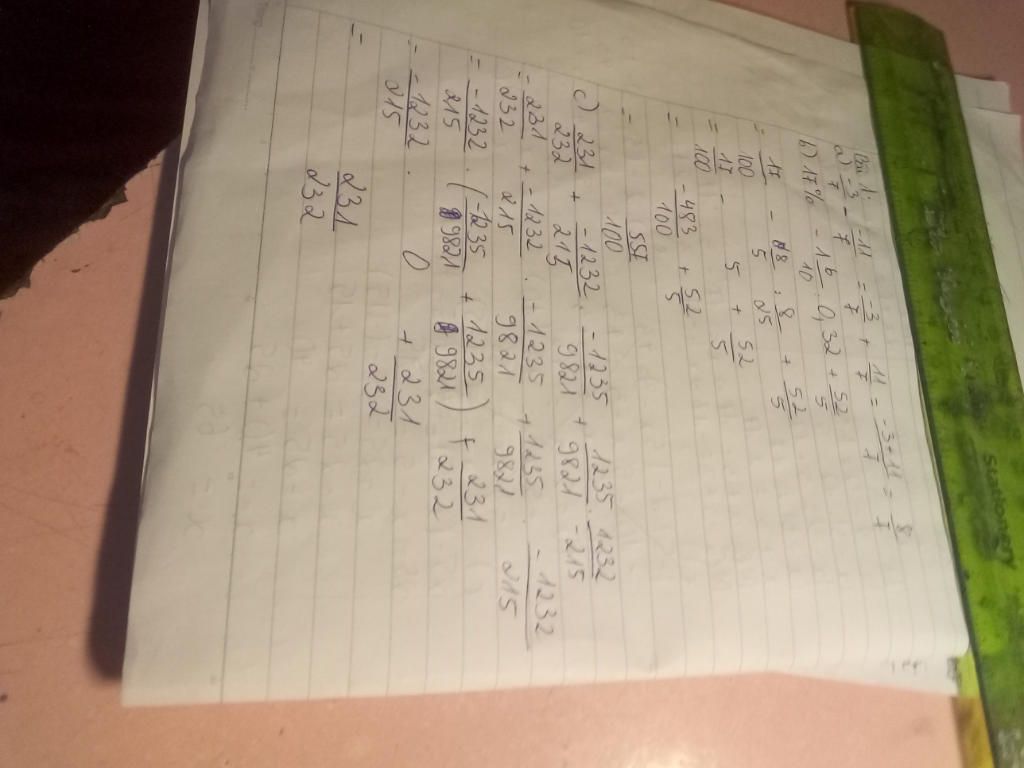 Bài 1:
a) -3/7 - -11/7 = -3/7 + 11/7 = -3+11/7 = 8/7
b) 17% - 1 6/10 . 0,32 + 52/5
= 17/100 - 8/5 . 8/25 + 52/5
= 17/100 - 5 + 52/5
= -483/100 + 52/5
= 557/100
c) 231/232 + -1232/215 . -1235/9821 + 1235/9821 . 1232/-215
= 231/232 + -1232/215 . -1235/9821 + 1235/9821 . -1232/215
= -1232/215 . (-1235/9821 + 1235/9821) + 231/232
= -1232/215 . 0 + 231/232
= 231/232
STATIONERY